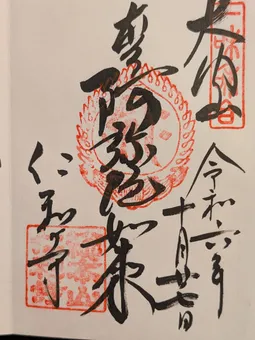 大内山
令和六年
十月廿七日
阿弥陀如来
仁和寺